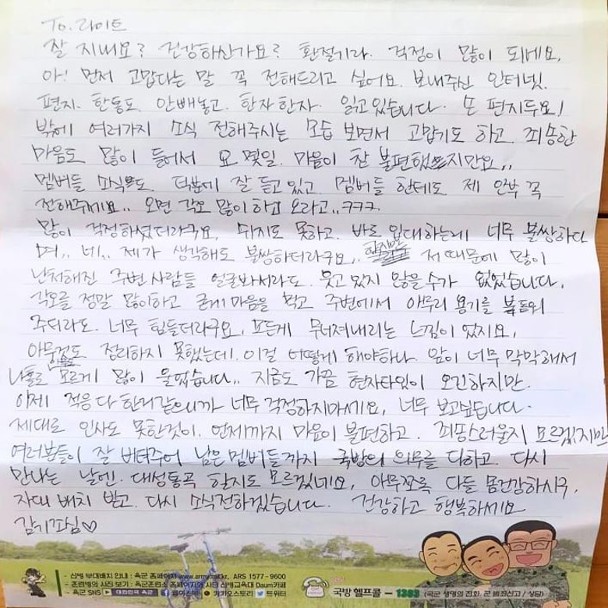 To. 라이트
잘 지내요? 건강하신가요? 환절기라. 걱정이 많이 되네요.
아! 먼저 고맙다는 말 꼭 전해드리고 싶어요. 보내주신 인터넷.
편지. 한통도 안빼놓고. 한자한자. 읽고있습니다. 손 편지두요!
밖에 여러가지 소식 전해주시는 모습 보면서 고맙기도 하고. 죄송한
마음도 많이 들어서 요 몇일. 마음이 참 불편했지만요..
멤버들 소식도. 덕분에 잘 듣고 있고 멤버들 한테도 제 안부 꼭
전해주세요.. 오면 각오 많이 하고 오라고..ㅋㅋㅋ.
많이 걱정하셨더라구요. 쉬지도 못하고. 바로 입대하는게 너무 불쌍하다
며.. 네.. 제가 생각해도 불쌍하더라구요.. 하지만 저 때문에 많이
난처해진 주변 사람들 얼굴봐서라도. 웃고 있지 않을수가 없었습니다.
각오를 정말 많이하고 굳게 마음을 먹고 주변에서 아무리 용기를 북돋워
주더라도. 너무 힘들더라구요. 모든게 무너져내리는 느낌이 있지요.
아무것도 정리하지 못했는데. 이걸 어떻게 해야하나 앞이 너무 막막해서
나홀로 모르게 많이 울었습니다.. 지금도 가끔 현자타임이 오긴하지만.
이제 적응 다 한거같으니까 너무 걱정하지마세요. 너무 보고싶습니다.
제대로 인사도 못한것이. 언제까지 마음이 불편하고. 죄송스러울지 모르겠지만
여러분들이 잘 버텨주어 남은 멤버들까지 국방의 의무를 다하고. 다시
만나는 날엔. 대성통곡 할지도 모르겠네요. 아무쪼록 다들 몸건강하시구,
자대 배치 받고. 다시 소식전하겠습니다. 건강하고 행복하세요
김기꺼심♡
- 신병 부대배치 안내 : 육군 홈페이지 www.army.mil.kr, ARS 1577-9600
- 훈련병의 사진 보기 : 육군훈련소 홈페이지와 사단 신병교육대 Daum카페
- 육군 SNS 대한민국 육군 카카오스토리 트위터
국방 헬프콜 - 1303 (국군 생명의 전화, 군 범죄신고 / 상담)